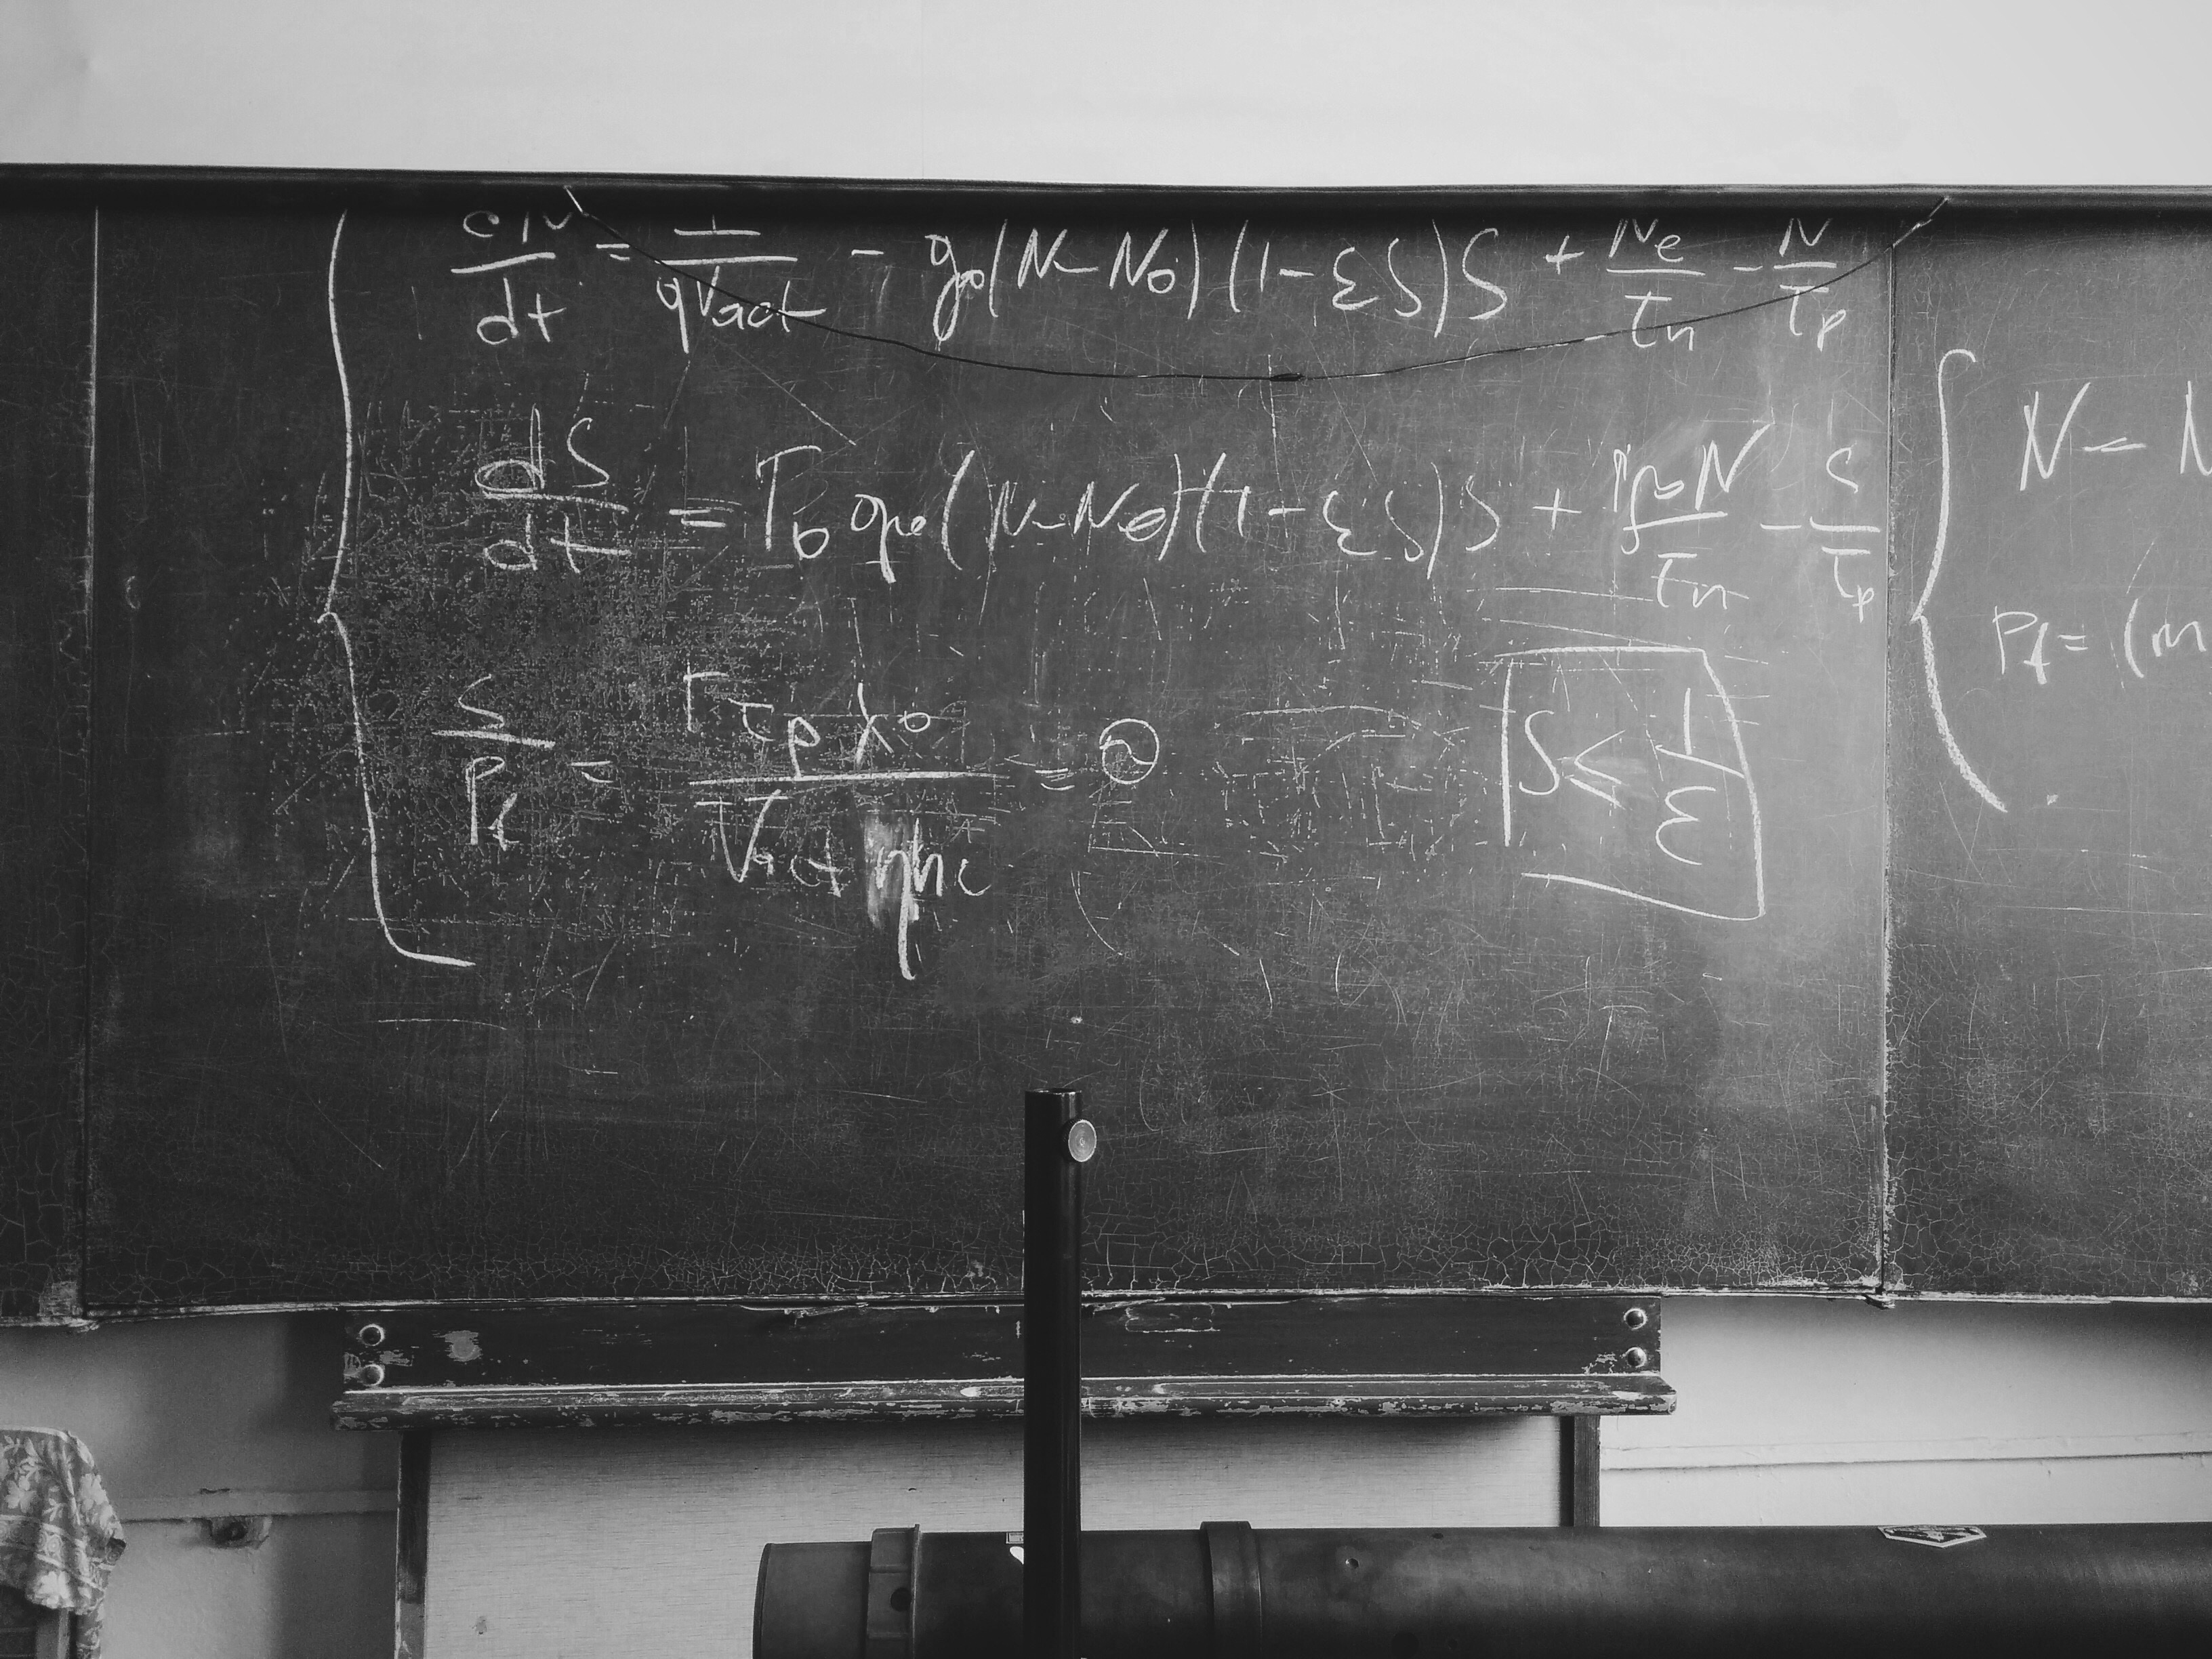 dN/dt = I/qVact - g₀(N-N₀)(1-εS)S + Ne/τn - N/τp
dS/dt = Γ₀g₀(N-N₀)(1-εS)S + N/τn - S/τp
S/Pf = Γτpλ₀/Vactηhc = 
S ≤ 1/ε
N =
Pf = (m